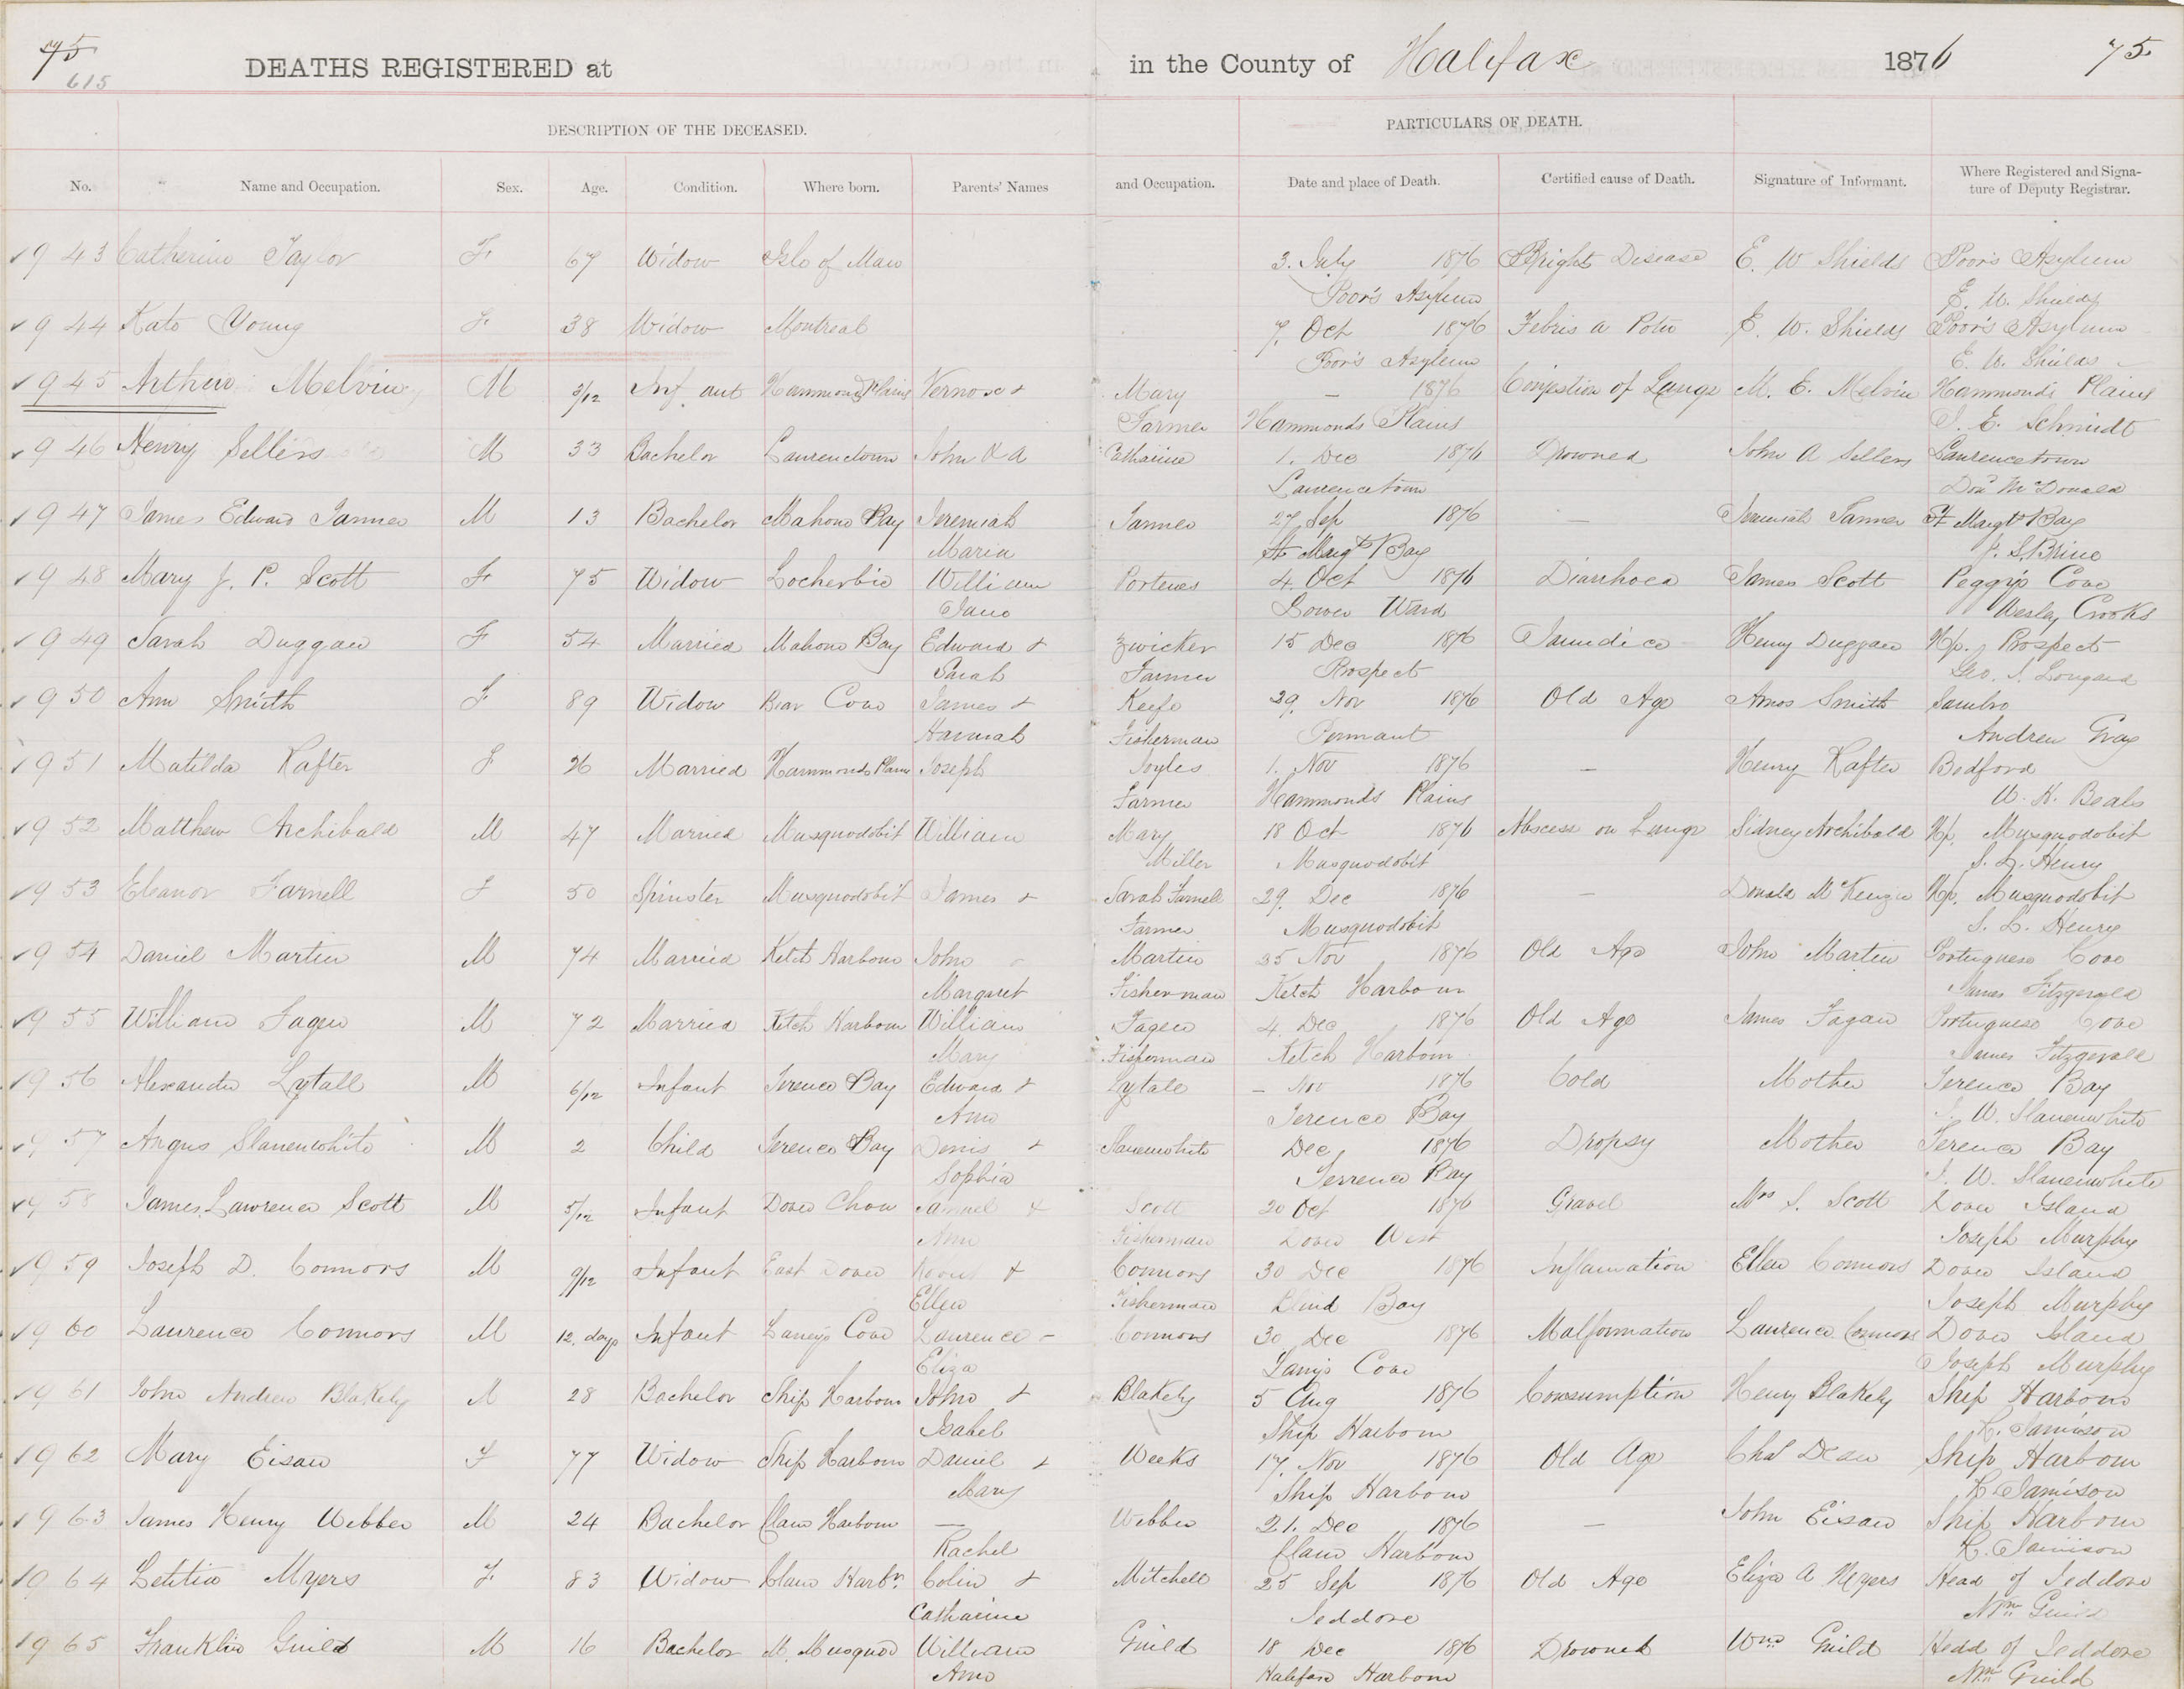 75
615
DEATHS REGISTERED at in the County of Halifax 1876 75
DESCRIPTION OF THE DECEASED. PARTICULARS OF DEATH.
No. Name and Occupation. Sex. Age. Condition. Where born. Parents' Names and Occupation. Date and place of Death. Certified cause of Death. Signature of Informant. Where Registered and Signature of Deputy Registrar.
1943 Catherine Taylor F 67 Widow Isle of Man 3. July 1876 Bright Disease E. W Shields Poor's Asylum
Poor's Asylum E. W. Shields
1944 Kate Young F 38 Widow Montreal 7. Oct 1876 Febris a Potu E. W. Shields Poor's Asylum
Poor's Asylum E. W. Shields
1945 Arthur Melvin M 3/12 Infant Hammonds Plains Vernose + Mary — 1876 Conjestion of Lungs M. E. Melvin Hammonds Plains
Farmer Hammonds Plains J. E. Schmidt
1946 Henry Sellers M 33 Bachelor Laurencetown John & A Catharine 1. Dec 1876 Drowned John A Sellers Laurencetown
Laurencetown Don McDonald
1947 James Edward Tanner M 13 Bachelor Mahone Bay Jeremiah Tanner 27 Sep 1876 — Jeremiah Tanner St Margts Bay
Maria St Margts Bay J. S Brine
1948 Mary J. P. Scott F 75 Widow Locherbie William Porteues 4. Oct 1876 Diarrhoea James Scott Peggys Cove
Jane Lower Ward Wesley Crooks
1949 Sarah Duggan F 54 Married Mahone Bay Edward + Zwicker 15 Dec 1876 Jaundice Henry Duggan Up. Prospect
Sarah Farmer Prospect Geo. S. Longard
1950 Ann Smith F 89 Widow Bear Cove James + Keefe 29. Nov 1876 Old Age Amos Smith Sambro
Hannah Fisherman Pennant Andrew Gray
1951 Matilda Rafter F 26 Married Hammonds Plains Joseph Joyles 1. Nov 1876 — Henry Rafter Bedford
Farmer Hammonds Plains W. H. Beals
1952 Matthew Archibald M 47 Married Musquodobit William Mary 18 Oct 1876 Abscess on Lungs Sidney Archibald Up. Musquodobit
Miller Musquodobit S. L. Henry
1953 Eleanor Farnell F 50 Spinster Musquodobit James + Sarah Farnell 29. Dec 1876 — Donald McKenzie Up. Musquodobit
Farmer Musquodobit S. L. Henry
1954 Daniel Martin M 74 Married Ketch Harbour John Martin 25 Nov 1876 Old Age John Martin Portuguese Cove
Margaret Fisherman Ketch Harbour James Fitzgerald
1955 William Fagen M 72 Married Ketch Harbour William Fagen 4. Dec 1876 Old Age James Fagan Portuguese Cove
Mary Fisherman Ketch Harbour James Fitzgerald
1956 Alexander Lytall M 6/12 Infant Terence Bay Edward + Lytale — Nov 1876 Cold Mother Terence Bay
Ann Terence Bay J. W. Slauenwhite
1957 Angus Slauenwhite M 2 Child Terence Bay Denis + Slauenwhite Dec 1876 Dropsy Mother Terence Bay
Sophia Terrence Bay J. W. Slauenwhite
1958 James Lawrence Scott M 5/12 Infant Dover Samuel & Scott 20 Oct 1876 Gravel Mrs S. Scott Dover Island
Ann Fisherman Dover West Joseph Murphy
1959 Joseph D. Connors M 9/12 Infant East Dover & Connors 30 Dec 1876 Inflamation Ellen Connors Dover Island
Ellen Fisherman Blind Bay Joseph Murphy
1960 Laurence Connors M 12. days Infant Laneys Cove Laurence – Connors 30 Dec 1876 Malformation Laurence Connors Dover Island
Eliza Lanys Cove Joseph Murphy
1961 John Andrew Blakely M 28 Bachelor Ship Harbour John + Blakely 5 Aug 1876 Consumption Henry Blakely Ship Harbour
Isabel Ship Harbour R. Jamison
1962 Mary Eisan F 77 Widow Ship Harbour Daniel + Weeks 17. Nov 1876 Old Age Chas Dean Ship Harbour
Mary Ship Harbour R. Jamison
1963 James Henry Webber M 24 Bachelor Clam Harbour — Webber 21. Dec 1876 — John Eisan Ship Harbour
Rachel Clam Harbour R. Jamison
1964 Letitia Myers F 83 Widow Clam Harbr. Colin + Mitchell 25 Sep 1876 Old Age Eliza A Myers Head of Jeddore
Catharine Jeddore Wm Guild
1965 Franklin Guild M 16 Bachelor M. Musquod William Guild 18 Dec 1876 Drowned Wm Guild Head of Jeddore
Ann Halifax Harbour Wm Guild